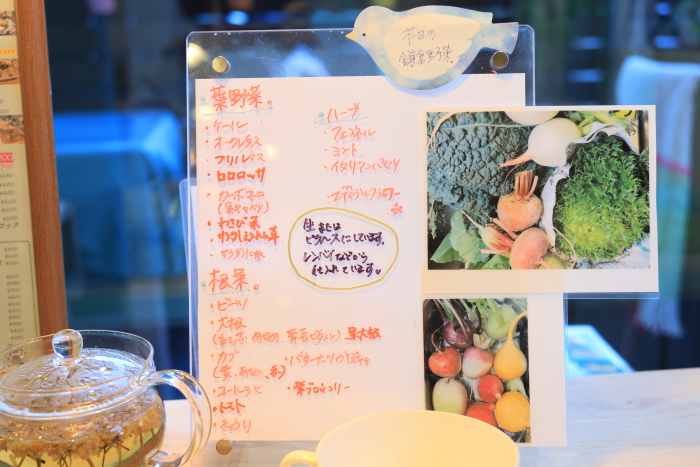 本日の
鎌倉野菜
葉野菜。
・ケール
・オークレタス
・フリルレタス
・ロロロッサ
・カーボネロ
(黒キャベツ)
・わさび菜
・サラダほうれん草
・サラダ水菜
根菜。
・ビーツ
・大根
黒大根
・カブ
・コールラビ
・トマト
・きゅうり
・バターナッツかぼちゃ
・紫ブロッコリー
・ハーブ
・フェンネル
・ミント
・イタリアンパセリ
・エディブルフラワー
生または
ピクルスにしています。
レンバイなどから
仕入れています。